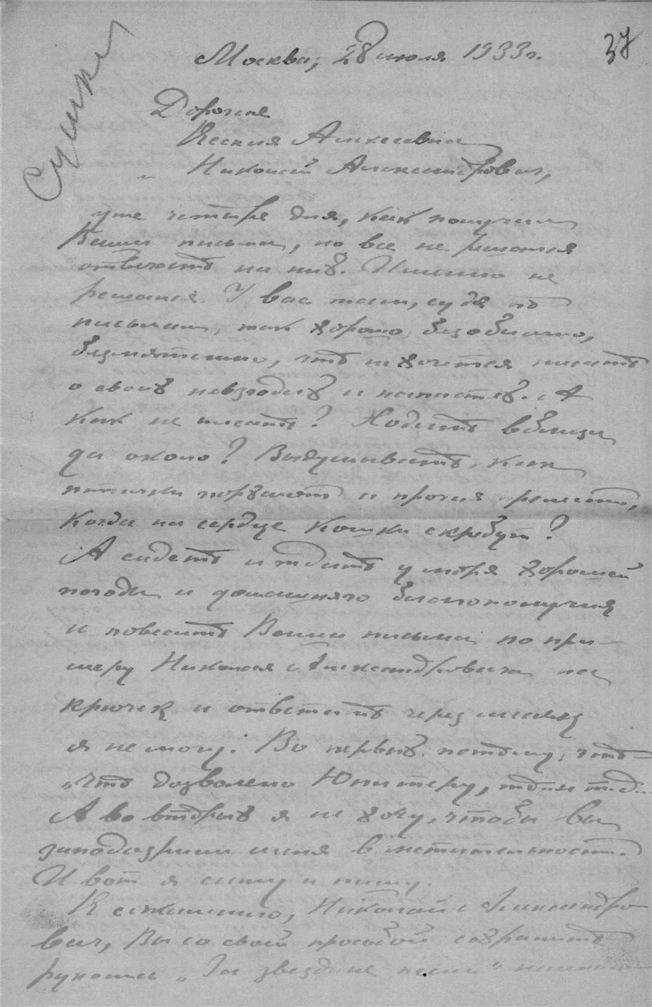 37
Сушке
Москва, 28 июля 1933 г.
Дорогие
Ксения Алексеевна
и Николай Александрович,
уже четыре дня, как получил
Ваши письма, но все не решался
отвечать на них. Именно не
решался. У вас там, судя по
письмам, так хорошо, безоблачно,
безмятежно, что не хочется писать
о своих невзгодах и напастях. А
как не писать? Ходить вблизи
да около? Выдумывать, как
птички порхают и прочия прелести,
когда на сердце кошки скребут?
А сидеть и ждать у моря хорошей
погоды и домашняго благополучия
и повесить Ваши письма по при-
меру Николая Александровича на
крючек и ответить через месяц
я не могу. Во первых, потому, что
"что дозволено Юпитеру, то" и т.д.
А во вторых я не хочу, чтобы вы
заподозрили меня в мстительности.
И вот я сижу и пишу.
К сожалению, Николай Александро-
вич, Вы со своей просьбой сохранить
рукопись "За звездные песни"